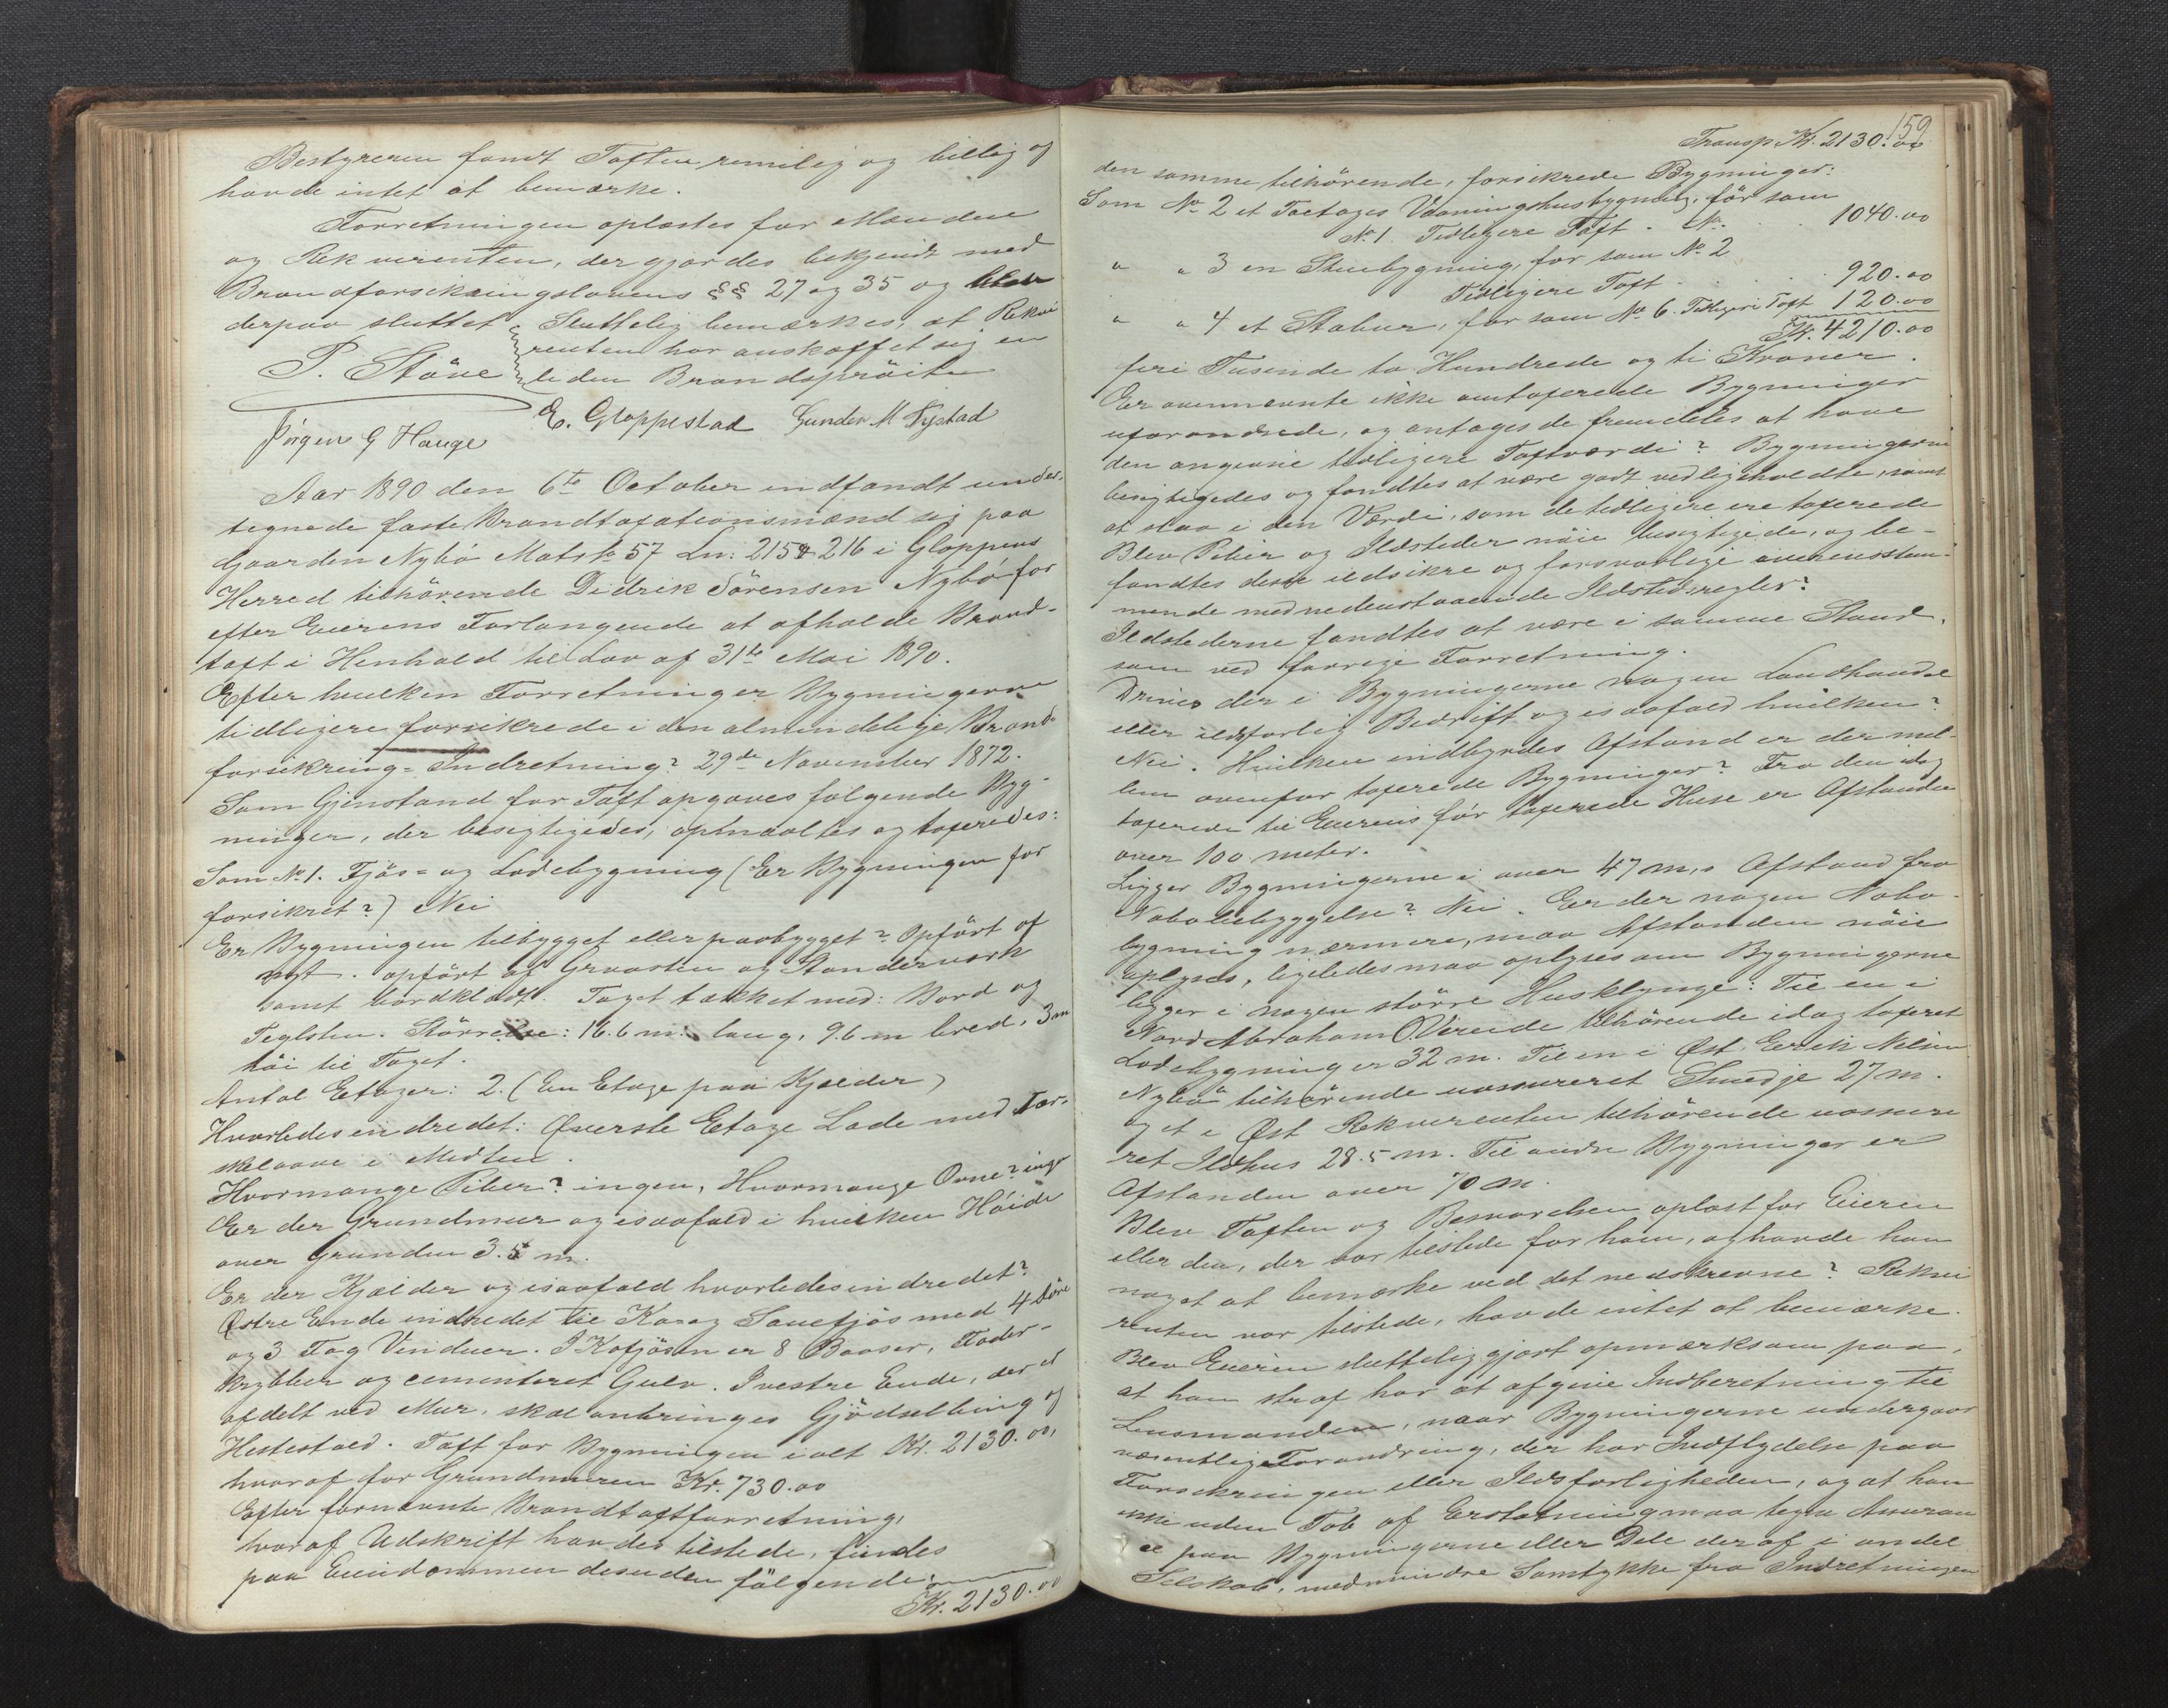 Bestyreren fandt Taxten rimelig og billig og
havde intet at bemærke.
Forretningen oplæstes for Mændene
og Rekvirenten, der gjordes bekjendt med
Brandforsikringslovens §§ 27 og 35 og blev
derpaa sluttet. Sluttelig bemærkes, at Rekvi
renten har anskaffet sig en
liden Brandsprøite
P. Støve
Jørgen G Hauge E. Gloppestad Gunder M Nystad
Aar 1890 den 6te October indfandt under-
tegnede faste Brandtaxationsmænd sig paa
Gaarden Nybø Matr No 57 Ln: 215 & 216 i Gloppens
Herred tilhørende Didrik Sørensen Nybø for
efter Eierens Forlangende at afholde Brand-
taxt i Henhold til Lov af 31te Mai 1890.
Efter hvilken Forretning er Bygningerne
tidligere forsikrede i den almindelige Brand-
forsikring-Indretning? 29de November 1872.
Som Gjenstand for Taxt opgaves følgende Byg-
ninger, der besigtigedes, opmaaltes og taxeredes:
Som No 1. Fjøs- og Ladebygning (Er Bygningen før
forsikret?) Nei
Er Bygningen tilbygget eller paabygget? Opført af
nyt. opført af Graasten og Standerværk
samt bordklædt. Taget tækket med: Bord og
Teglsten. Størrelse: 16.6 m. lang, 9.6 m bred, 3 m
høi til Taget.
Antal Etager: 2. (En Etage paa Kjælder)
Hvorledes indredet: Øverste Etage Lade med Tær-
skelaave i Midten.
Hvormange Piber? ingen, Hvormange Ovne? ingen
Er der Grundmur og isaafald i hvilken Høide
over Grunden 3.5 m.
Er der Kjælder og isaafald hvorledes indredet?
Østre Ende indredet til Ko og Sauefjøs med 4 Døre
og 3 Fag Vinduer. I Kofjøsen er 8 Baaser, Foder-
krybber og cementeret Gulv. I vestre Ende, der er
afdelt ved Mur, skal anbringes Gjødselbing og
Hestestald. Taxt for Bygningen ialt Kr. 2130.00,
hvoraf for Grundmuren Kr. 730.00
Efter fornævnte Brandtaxtforretning,
hvoraf Udskrift havdes tilstede, findes
paa Eiendommen desuden følgende
Kr. 2130.00
159
Transp Kr. 2130.00
den samme tilhørende, forsikrede Bygninger:
Som No 2 et Toetages Vaaningshusbygning, før som
No 1. Tidligere Taxt . No. . . 1040.00
" " 3 en Stuebygning, før som No 2
Tidligere Taxt . . . 920.00
" " 4 et Stabur, før som No 6. Tidligere Taxt 120.00
Kr. 4210.00
fire Tusinde to Hundrede og ti Kroner.
Er ovennævnte ikke omtaxerede Bygninger
uforandrede, og antages de fremdeles at have
den angivne tidligere Taxtværdi? Bygningerne
besigtigedes og fandtes at være godt vedligeholdte, samt
at staa i den Værdi, som de tidligere ere taxerede
Blev Piber og Ildsteder nøie besigtigede, og be-
fandtes disse ildsikre og forsvarlige overensstem-
mende med nedenstaaende Ildstedsregler?
Ildstederne fandtes at være i samme Stand,
som ved forrige Forretning.
Drives der i Bygningerne nogen Landhandel
eller ildsfarlig Bedrift og isaafald hvilken?
Nei. Hvilken indbyrdes Afstand er der mel-
lem ovenfor taxerede Bygninger? Fra den idag
taxerede til Eierens før taxerede Huse er Afstanden
over 100 meter.
Ligger Bygningerne i over 47 m,s Afstand fra
Nabobebyggelse? Nei. Er der nogen Nabo-
bygning nærmere, maa Afstanden nøie
oplyses, ligeledes maa oplyses om Bygningerne
ligger i nogen større Husklynge: Til en i
Nord Abraham O. Vereide tilhørende idag taxeret
Ladebygning er 32 m. Til en i Øst Erik Nilsen
Nybø tilhørende uassureret Smedje 27 m.
og et i Øst Rekvirenten tilhørende uassure
ret Ildhus 28.5 m. Til andre Bygninger er
Afstanden over 70 m.
Blev Taxten og Besvarelsen oplæst for Eieren
eller den, der var tilstede for ham, og havde han
noget at bemærke ved det nedskrevne? Rekvi
renten var tilstede, havde intet at bemærke.
Blev Eieren sluttelig gjort opmærksom paa,
at han straf har at afgive Indberetning til
Lensmanden, naar Bygningerne undergaar
væsentlig Forandring, der har Indflydelse paa
Forsikringen eller Ildsfarligheden, og at han
ikke uden Tab af Erstatning maa tegne Assuran
ce paa Bygningerne eller Dele deraf i andet
Selskab, medmindre Samtykke fra Indretningen